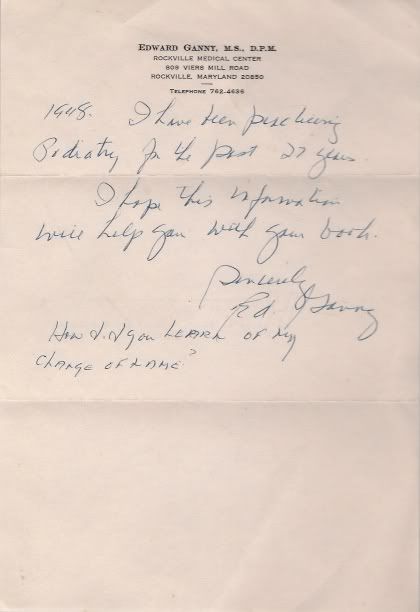 EDWARD GANNY, M.S., D.P.M.
ROCKVILLE MEDICAL CENTER
809 VIERS MILL ROAD
ROCKVILLE, MARYLAND 20850
TELEPHONE 762-4636
1948. I have been practicing
Podiatry for the past 27 years.
I hope this information
will help you with your book.
Sincerely
Ed Ganny
How did you LEARN OF my
CHANGE OF NAME?